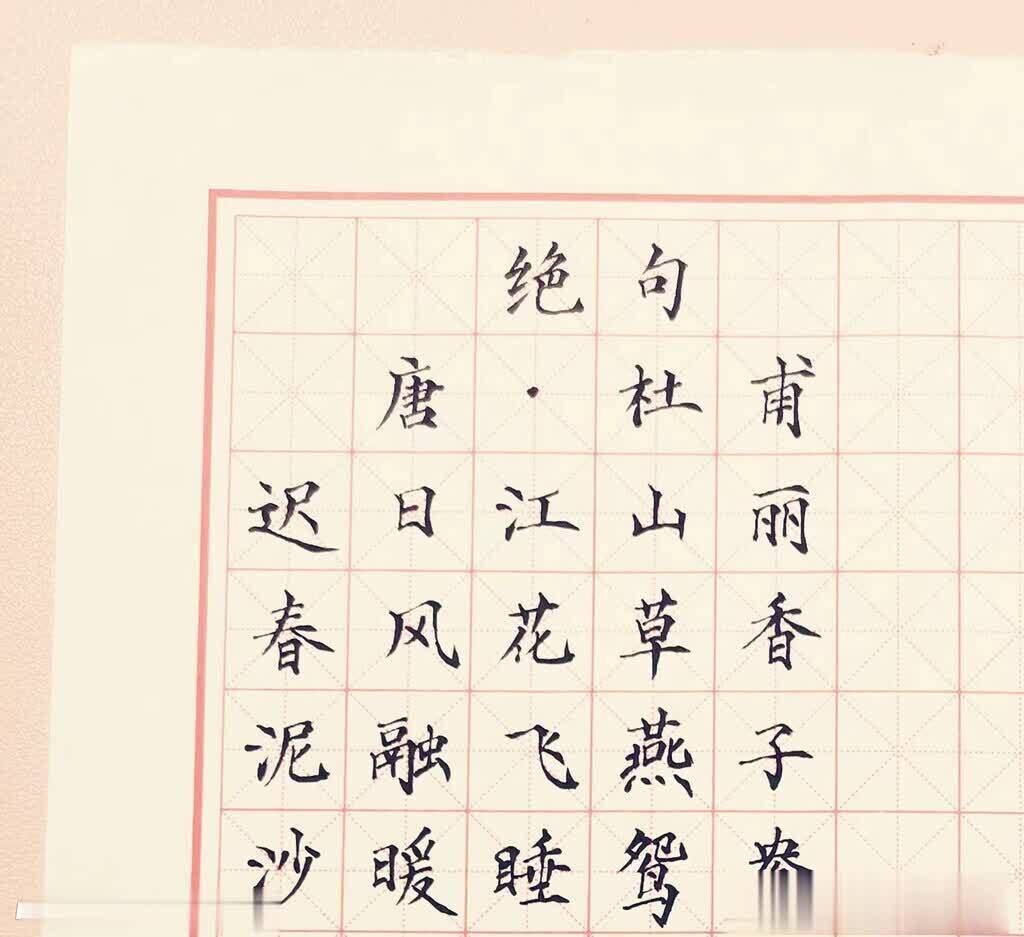 绝句
唐·杜甫
迟日江山丽
春风花草香
泥融飞燕子
沙暖睡鸳